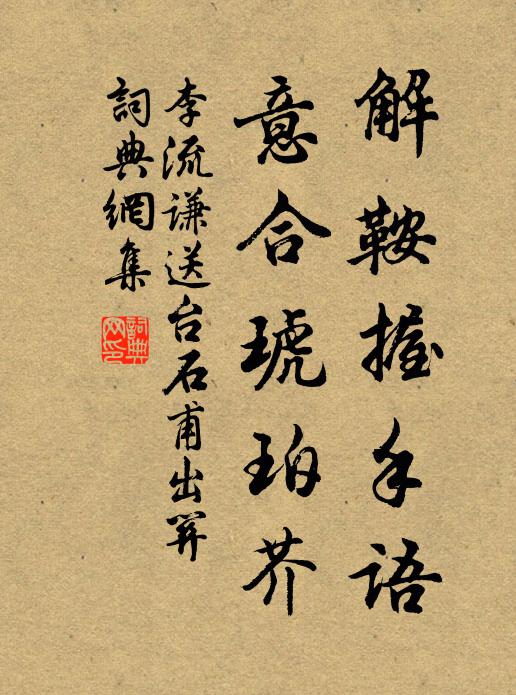 解鞍握手語
意合琥珀芥
李流謙送台石甫出關
詞典網集
詞典网印